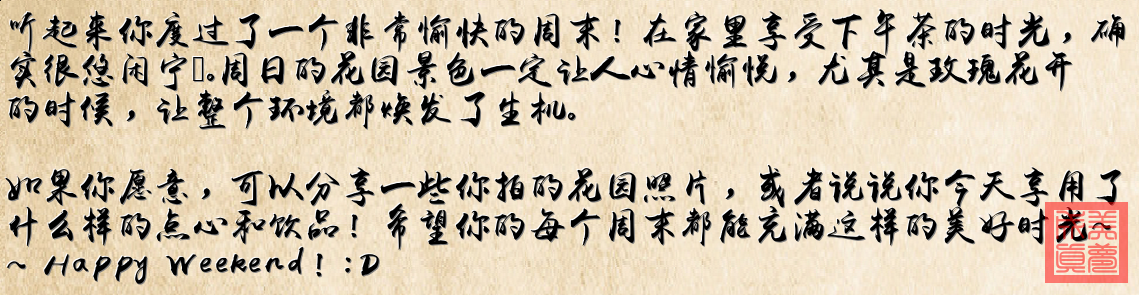 听起来你度过了一个非常愉快的周末！在家里享受下午茶的时光，确
实很悠闲宁。周日的花园景色一定让人心情愉悦，尤其是玫瑰花开
的时候，让整个环境都焕发了生机。
如果你愿意，可以分享一些你拍的花园照片，或者说说你今天享用了
什么样的点心和饮品！希望你的每个周末都能充满这样的美好时光~
~ Happy Weekend! :D